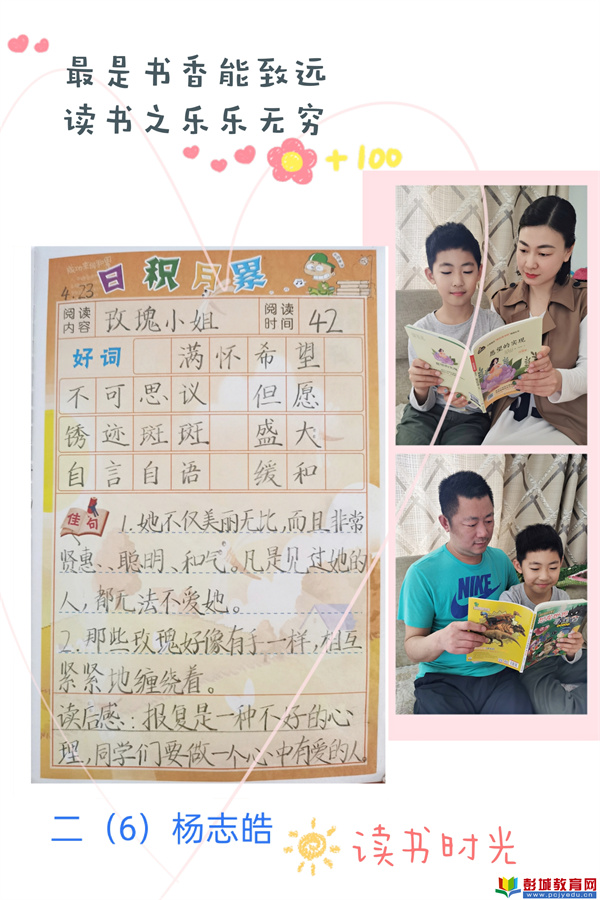 最是书香能致远
读书之乐乐无穷
+100
日积月累
4.23
阅读内容 玫瑰小姐 阅读时间 42
好词 满怀希望
不可思议 但愿
锈迹斑斑 盛大
自言自语 缓和
佳句 1.她不仅美丽无比,而且非常
贤惠、聪明、和气。凡是见过她的
人,都无法不爱她。
2.那些玫瑰好像有手一样,相互
紧紧地缠绕着。
读后感:报复是一种不好的心
理,同学们要做一个心中有爱的人
愿望的实现
NIKE
二(6)杨志皓
读书时光
彭城教育网
www.pcjyedu.cn